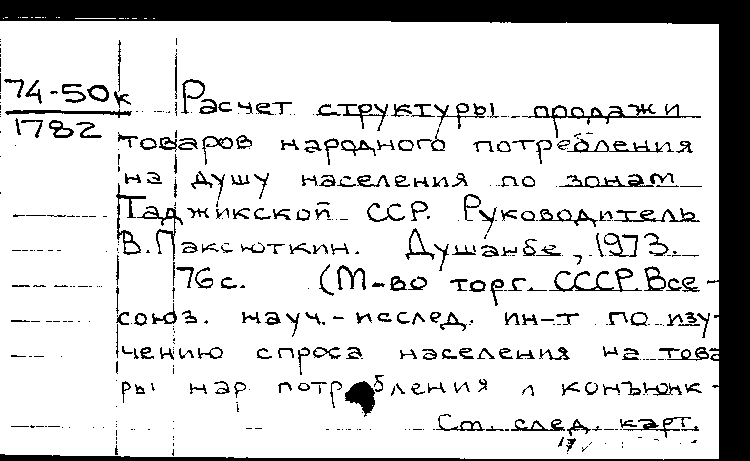 74-50к
1782
Расчет структуры продажи
товаров народного потребления
на душу населения по зонам
Таджикской ССР. Руководитель
В.Паксюткин. Душанбе, 1973.
76 с. (М-во торг. СССР. Все-
союз. науч.-исслед. ин-т по изу-
чению спроса населения на това
ры нар потребления и конъюнк-
См. след. карт.